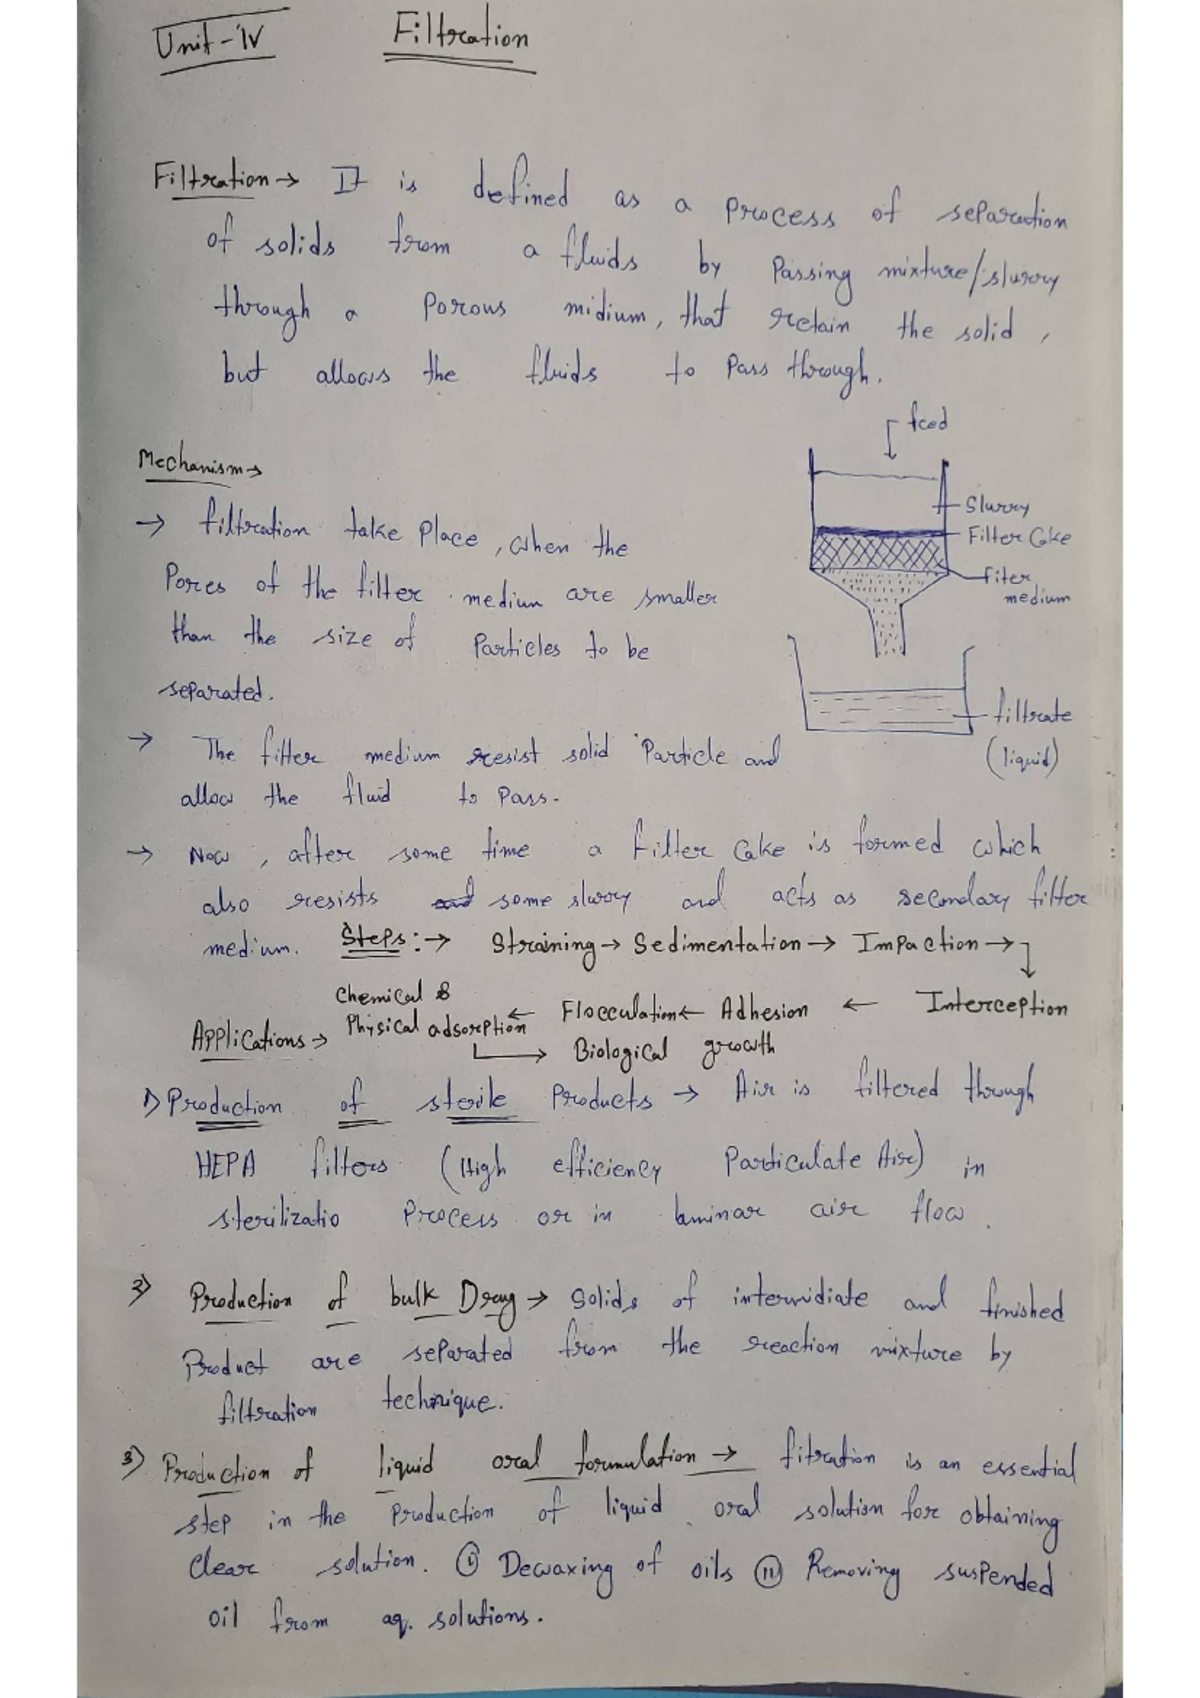 Unit-IV Filtration
Filtration → It is defined as a process of separation
of solids from a fluids by Passing mixture/slurry
through a Porous midium, that retain the solid,
but allows the fluids to Pass through.
feed
Mechanism →
Slurry
→ filtration take place, when the
Filter Cake
Pores of the filter medium are smaller
fiter
medium
than the size of Particles to be
separated.
filtrate
(liquid)
→ The filter medium resist solid Particle and
allow the fluid to Pass.
→ Now, after some time a filter Cake is formed which
also resists and some slurry and acts as secondary filter
medium. Steps:→ Straining → Sedimentation → Impaction →
Chemical &
Physical adsorption ← Flocculation ← Adhesion ← Interception
Applications → Biological growth
1) Production of sterile Products → Air is filtered through
HEPA filters (High efficiency Particulate Air) in
sterilizatio Process or in laminar air flow.
2) Production of bulk Drug → Solids of intermidiate and finished
Product are separated from the reaction mixture by
filtration technique.
3) Production of liquid oral formulation → fitration is an essential
step in the Production of liquid oral solution for obtaining
Clear solution. (i) Dewaxing of oils (ii) Removing suspended
oil from aq. solutions.